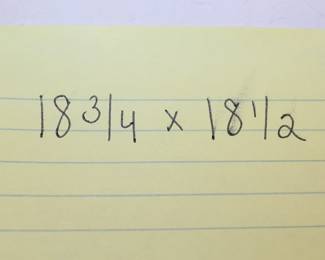 18 3/4 x 18 1/2